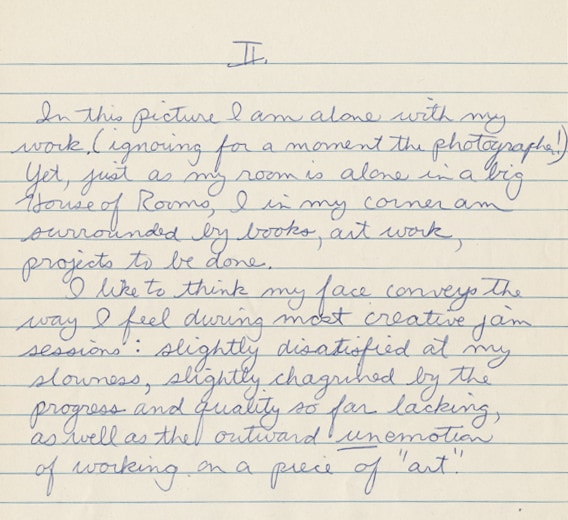 II.
In this picture I am alone with my
work. (ignoring for a moment the photographer!)
Yet, just as my room is alone in a big
House of Rooms, I in my corner am
surrounded by books, art work,
projects to be done.
I like to think my face conveys the
way I feel during most creative jam
sessions: slightly disatisfied at my
slowness, slightly chagrined by the
progress and quality so far lacking,
as well as the outward unemotion
of working on a piece of "art".